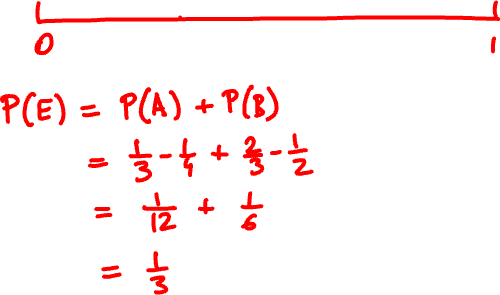 0 1
P(E) = P(A) + P(B)
= 1/3 - 1/4 + 2/3 - 1/2
= 1/12 + 1/6
= 1/3